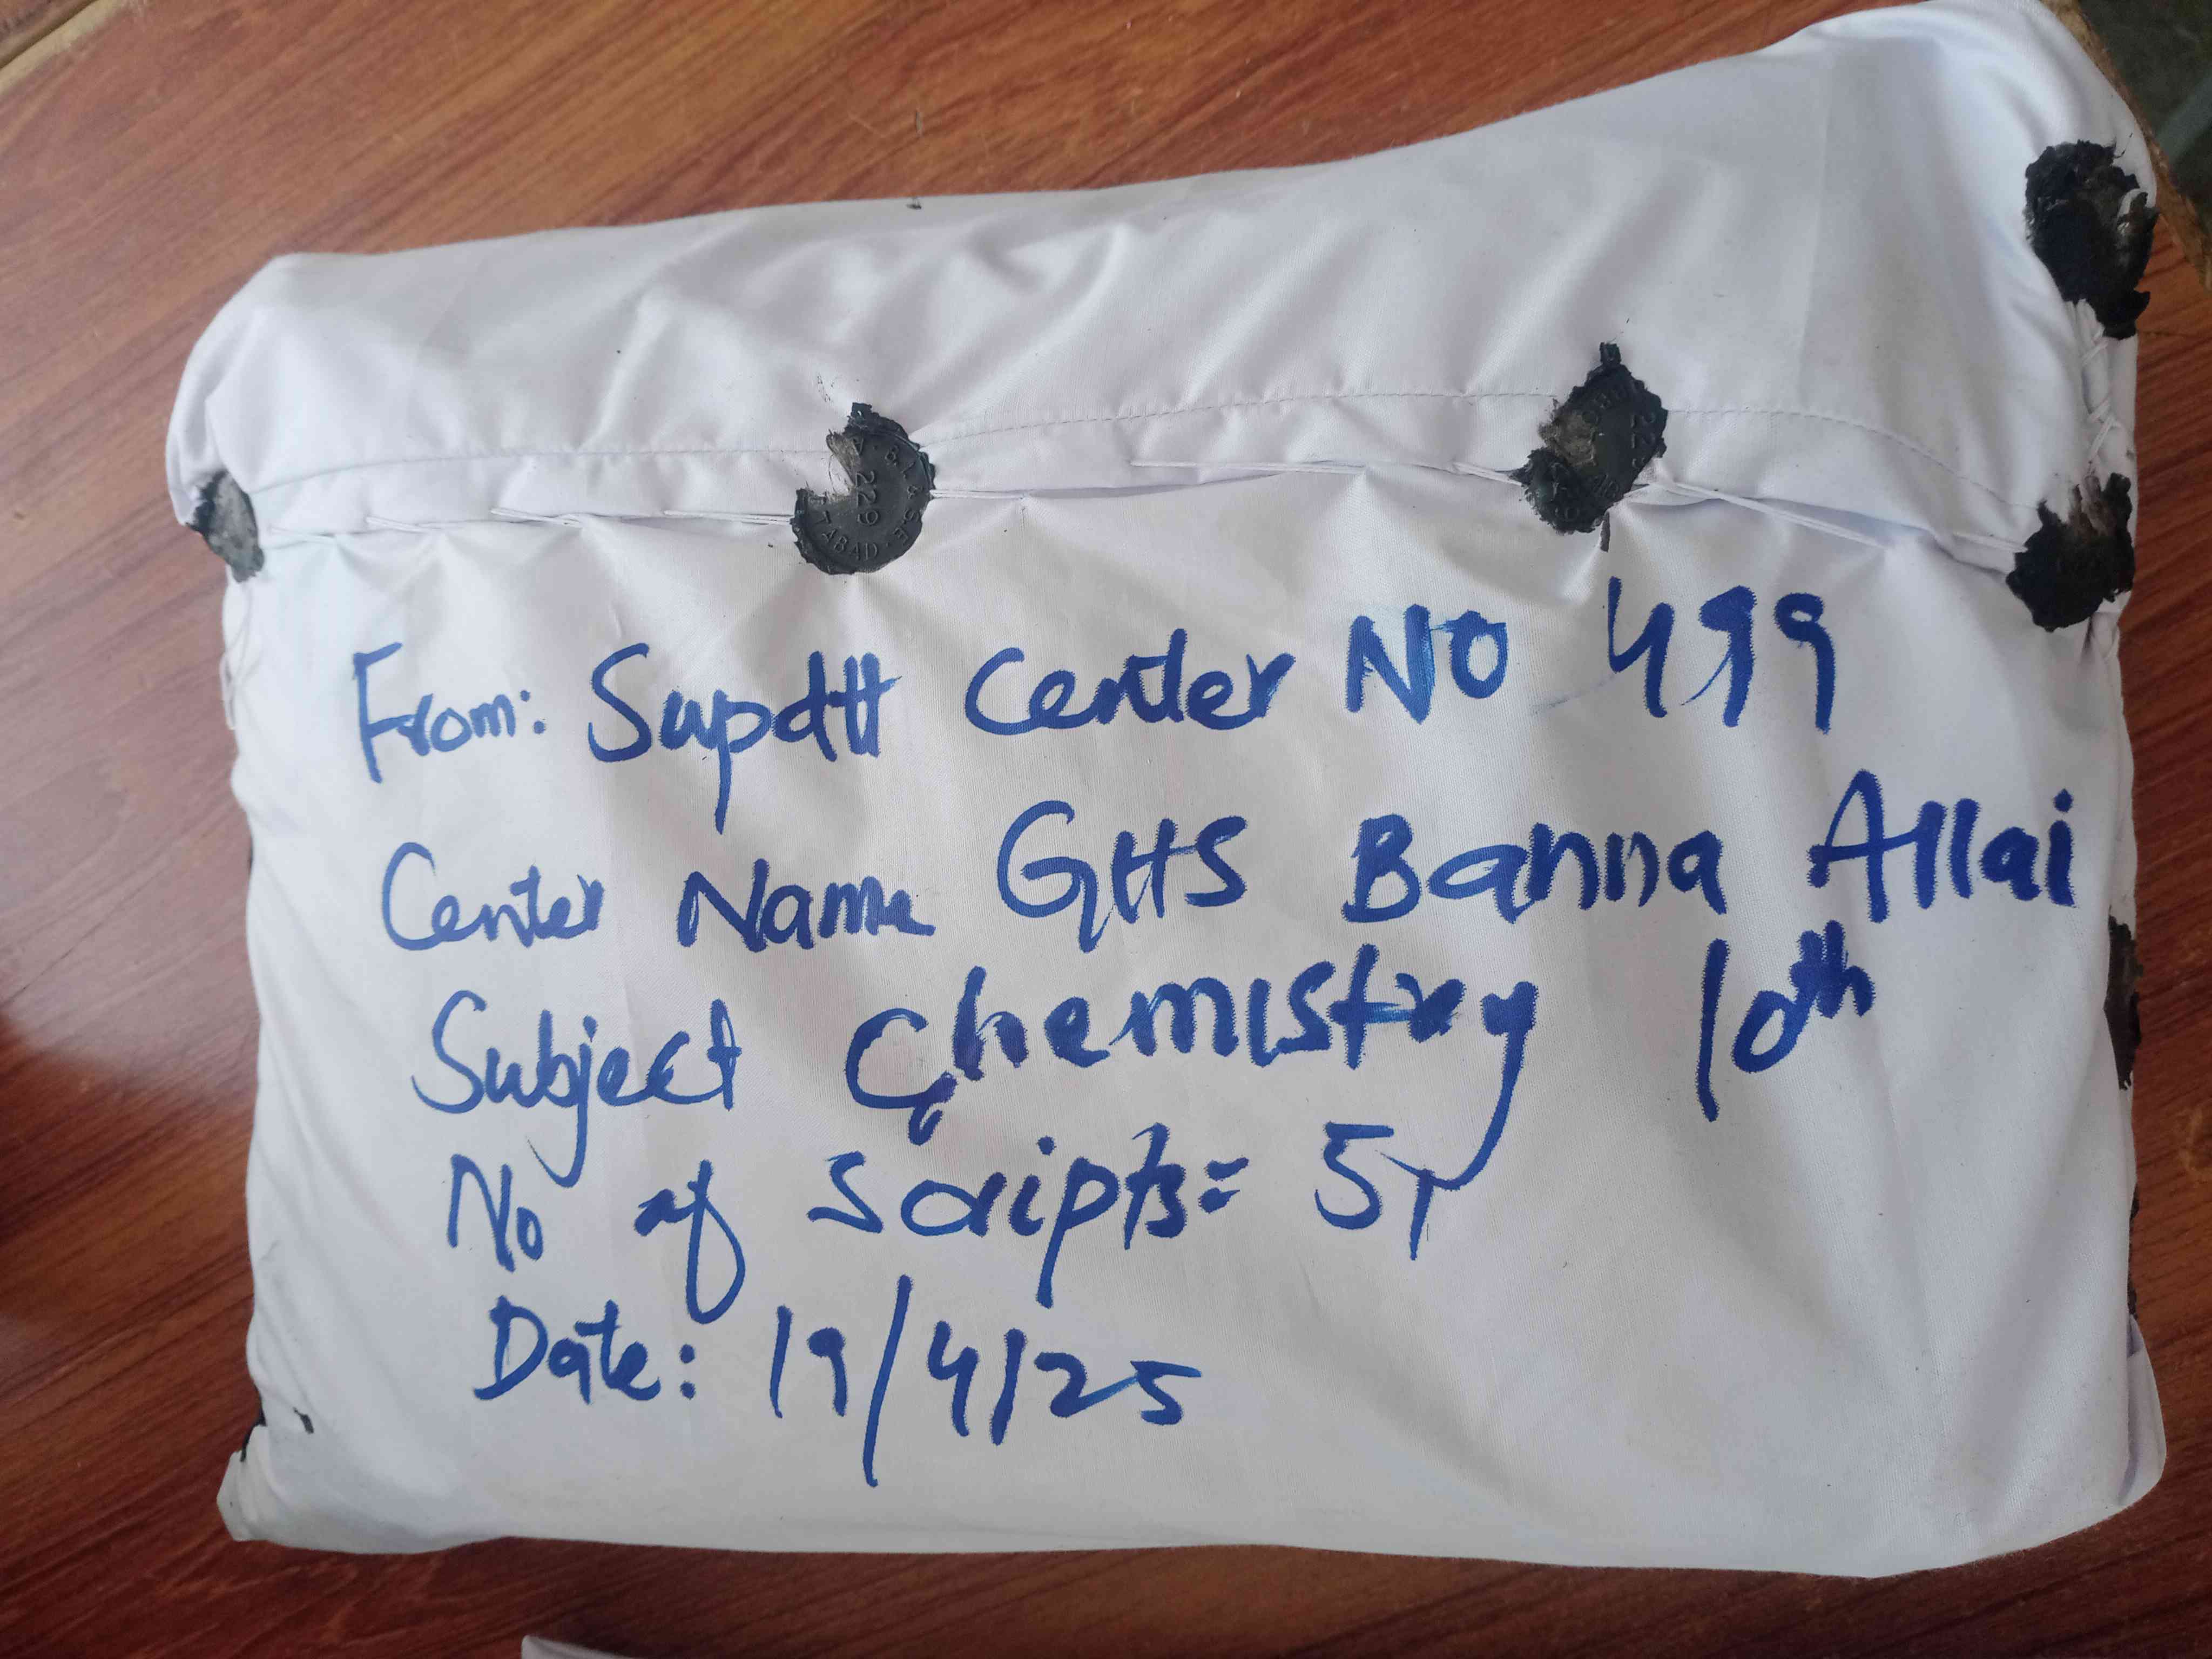 B.I. & S.E.
229
TABAD
22
From: Supdtt Center NO 499
Center Name GHS Banna Allai
Subject Chemistry 10th
No of Scripts= 51
Date: 19/4/25